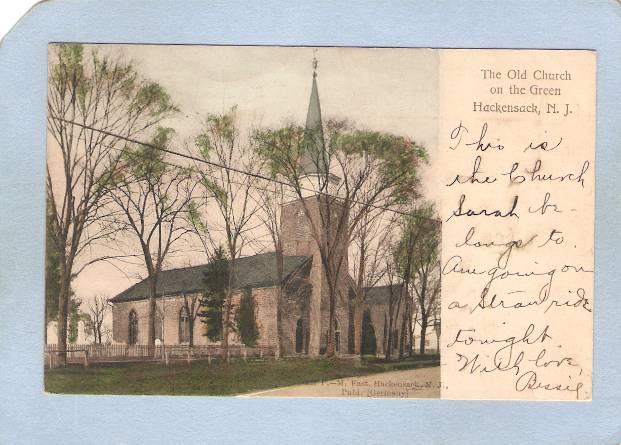 The Old Church
on the Green
Hackensack, N. J.
This is
the Church
Sarah be-
longs to.
Am going on
a Straw ride
tonight.
With love,
Bessie
M. East, Hackensack, N. J.,
Publ. [Germany]